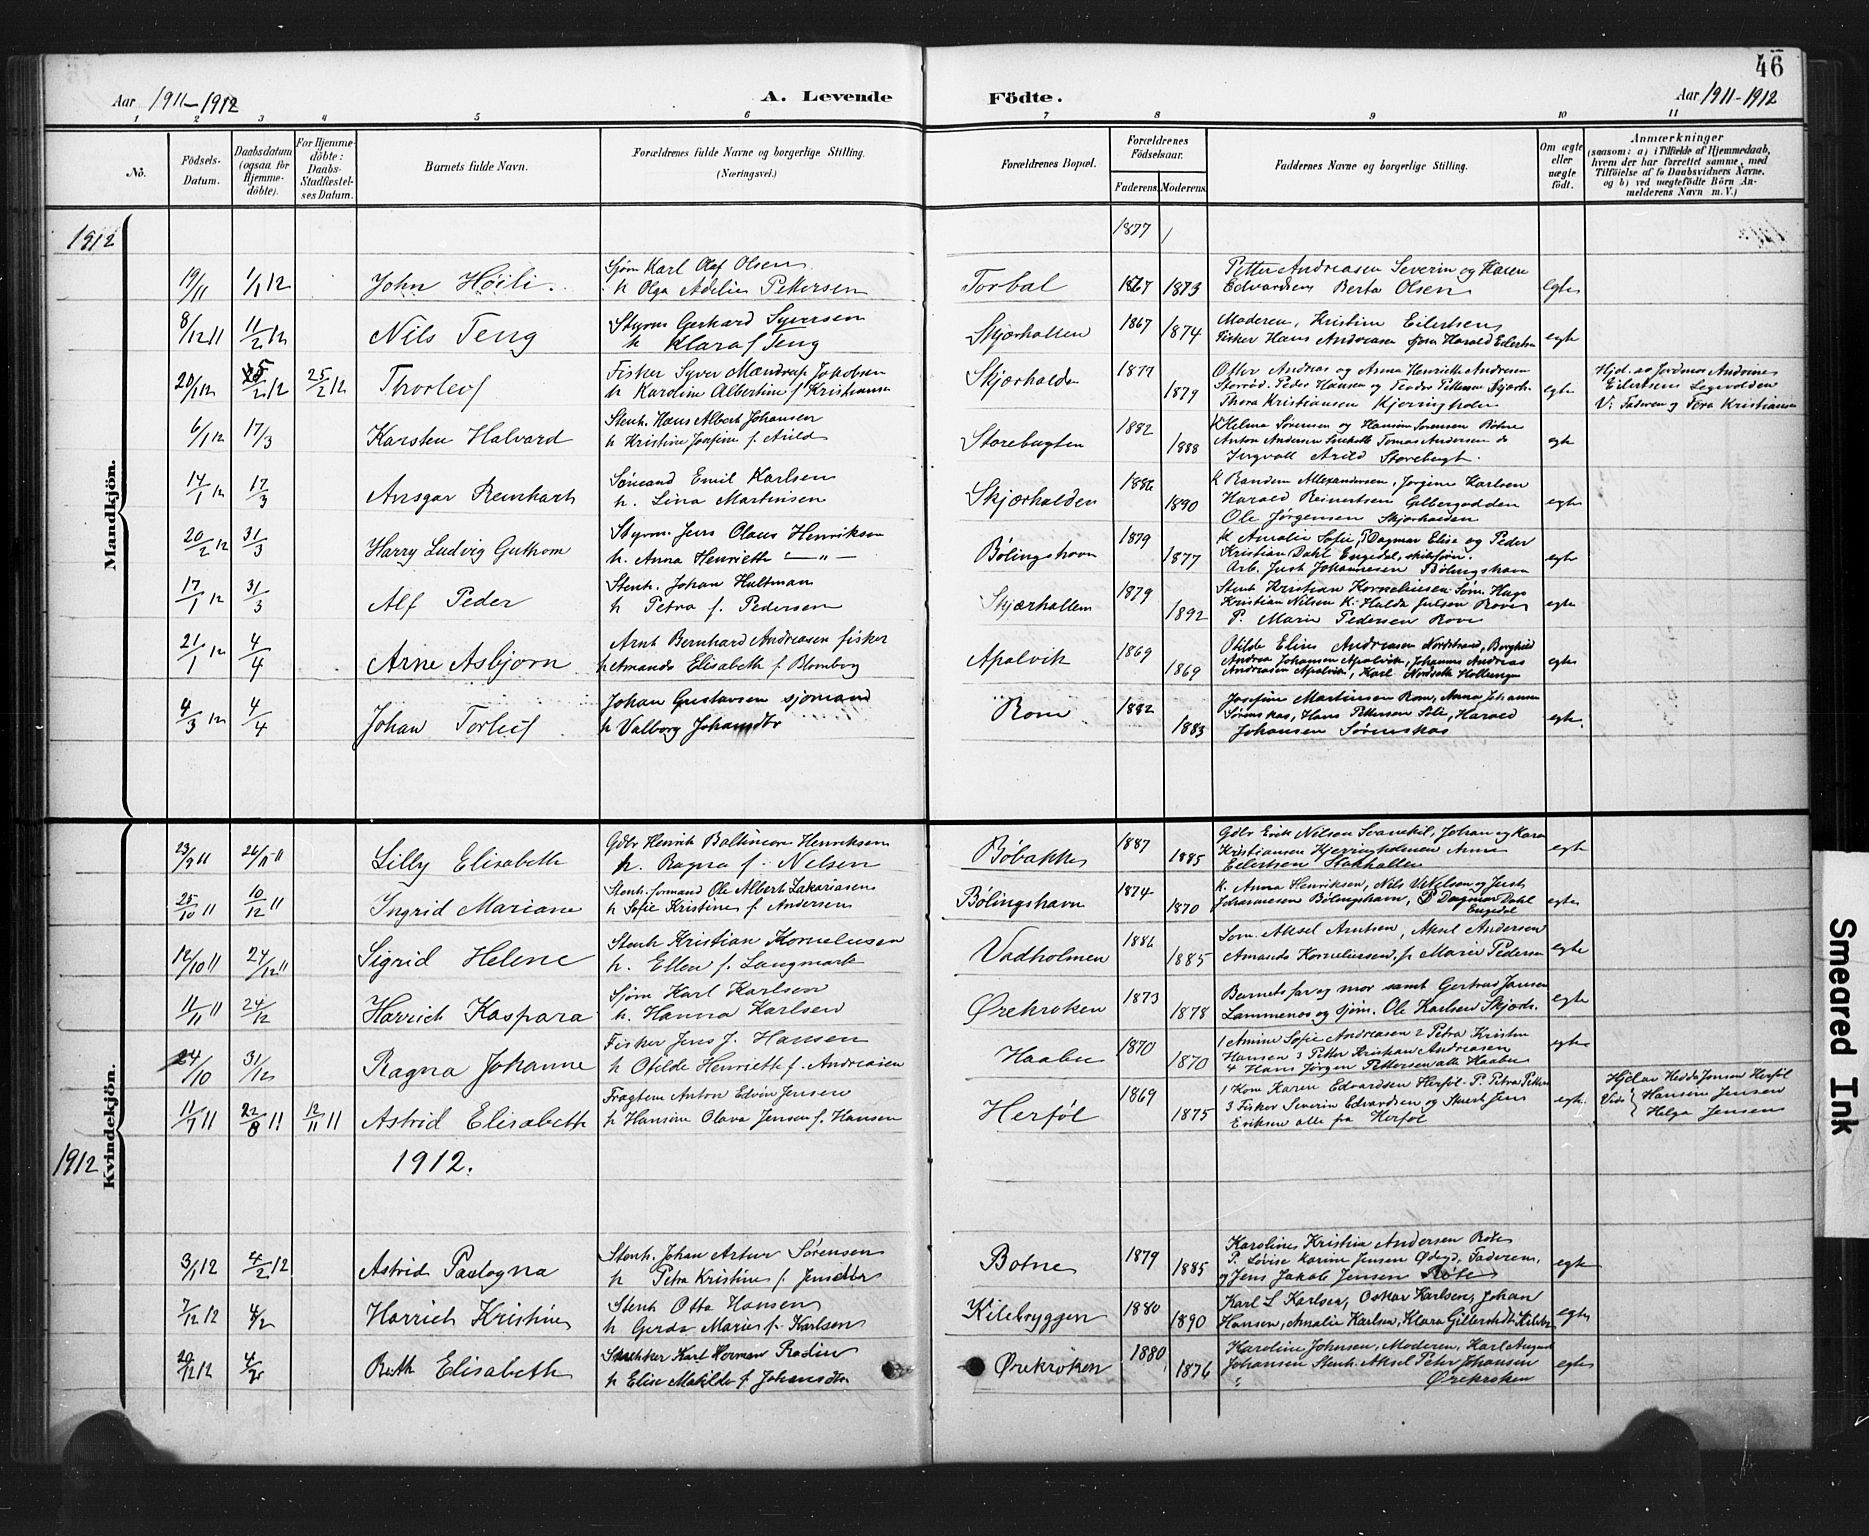 46
Aar 1911-1912
A. Levende Födte.
Aar 1911-1912
1 2 3 4 5 6 7 8 9 10 11
No.
Födsels-Datum.
Daabsdatum (ogsaa for Hjemmedöbte).
For Hjemmedöbte: Daabs-Stadfæstelses Datum.
Barnets fulde Navn.
Forældrenes fulde Navne og borgerlige Stilling. (Næringsvei.)
Forældrenes Bopæl.
Forældrenes Födselsaar.
Faderens. Moderens.
Faddernes Navne og borgerlige Stilling.
Om ægte eller uægte födt.
Anmærkninger
(saasom: a) i Tilfælde af Hjemmedaab, hvem der har forrettet samme, med Tilföielse af to Daabsvidners Navne, og b) ved uægtefödte Börn Anmelderens Navn m. V.)
Mandkjön.
1912
1877
19/11 1/1 12 John Høili. Sjøm Karl Olaf Olsen
h Olga Adelie Pettersen Torbal 1867 1873 Petter Andreasen Severin og Karen
Edvardsen Berta Olsen egte
8/12 11 11/2 12 Nils Teng Styrm Gerhard Syversen
h Klara f Teng Skjærhallen 1867 1874 Moderen, Kristine Eilertsen
Fisker Hans Andreasen Harald Eilertsen egte
20/1 12 25/2 12 25/2 12 Thorleif Fisker Syver Jakobsen
h Karoline Albertine f Kristiansen Skjærhalden 1877 1879 og Anna Henriette Andresen
Peder Hansen og
Thora Kristiansen Kjerringholm egte
Eilertsen
V: Faderen og Tora Kristiansen
6/1 12 17/3 Karsten Halvard Stenh. Hans Albert Johansen
h Kristine Josefine f. Arild Storebugten 1882 1888 K Helma Sørensen og Hansine Sørensen Botne
Anton Andersen Tomas Andersen do
Ingvall Arild Storebugt. egte
14/1 12 17/3 Ansgar Reinhart Sømand Emil Karlsen
h. Lina Martinsen Skjærhalden 1886 1890 K Randine Alexandersen, Jorgine Karlsen
Harald Reinertsen
Ole Jørgensen Skjærhalden egte
20/2 12 31/3 Harry Ludvig Guthom Styrm. Jens Olaus Henriksen
h. Anna Henriette — " — Bølingshavn 1879 1877 K Amalie Sofie, Dagmar Elise og Peder
Kristian Dahl Engedal,
Arb. Just Johannesen Bølingshavn egte
17/1 12 31/3 Alf Peder Stenh. Johan Hultman
h Petra f. Pedersen Skjærhallen 1879 1892 Stenh Kristian Korneliusen Søm. Hugo
Kristian Nilsen K. Hulda Julsen Rove
P. Marie Pedersen Rove egte
21/1 12 4/4 Arne Asbjørn Arnt Bernhard Andreasen fisker
h Amanda Elisabeth f. Blomberg Apalvik 1869 1869 Otilde Elise Andreasen Nordstrand, Borghild
Andrea Johansen Apalvik, Johannes Andreas
Andreasen Apalvik, Karl egte
4/3 12 4/4 Johan Torleif Johan Gustavsen sjømand
h Valborg Johansdtr Rom 1882 1883 Josefine Martinsen Rom, Anna Johansen
Sørenskas, Hans Pettersen, Harald
Johansen Sørenskas egte.
Kvindekjön.
23/9 11 26/11 11 Lilly Elisabeth Gdbr Henrik Baltiniore Henriksen
h. Ragna f. Nelsen Bøbakke 1887 1885 Gdbr Erik Nilsen Svanekil, Johan og Kara
Kristiansen Kjerringholmen Anna
Eilertsen Stokkallen egte
25/10 11 10/12 11 Ingrid Mariane Stenh. formand Ole Albert Zakariasen
h Sofie Kristine f. Andersen Bølingshavn 1874 1870 K. Anna Henriksen, Nils V. Nelsen og Just
Johannesen Bølingshavn, P Dagmar Dahl
Engedal egte
12/10 11 24/12 11 Sigrid Helene Stenh Kristian Korneliusen
h. Ellen f. Langmark Vadholmen 1886 1885 Søm. Aksel Arntsen, Aksel Andersen
Amanda Korneliussen, p Marie Pedersen egte
11/11 24/12 Harriet Kaspara Sjøm Karl Karlsen
h. Hanna Karlsen Ørekroken 1873 1878 Barnets far og mor samt Gertrud Jansen
Lammenæs og sjøm. Ole Karlsen Skjærh. egte
24/10 31/12 Ragna Johanne Fisker Jens J. Hansen
h Otilde Henriette f. Andreasen Haabu 1870 1870 1 Amine Sofie Andreasen 2 Petra Kristine
Hansen 3 Petter Kristian Andreasen
4 Hans Jørgen Pettersen alle Haabu egte
11/7 11 22/8 11 12/11 11 Astrid Elisabeth Fragtem Anton Edvin Jensen
h Hansine Olava Jensen f. Hansen Herføl 1869 1875 1 Kone Karen Edvardsen Herføl. P. Petra Petters
3 Fisker Severin Edvardsen og Jens
Eriksen alle fra Herføl egte.
Hjd av Hedda Jensen Herføl
Vid: Hansine Jensen
Helga Jensen
1912
1912.
3/1 12 4/2 12 Astrid Palogna Stenh. Johan Artur Sørensen
h Petra Kristine f. Jensdtr Botne 1879 1885 Karoline Kristin Andersen Røde
P. Lovise Karine Jensen Ødegd, Faderen,
og Jens Jakob Jensen Røde egte
7/12 12 4/2 Harriet Kristine Stenh Otto Hansen
h Gerda Marie f. Karlsen Kilebryggen 1880 1890 Karl L Karlsen, Oskar Karlsen, Johan
Hansen, Amalie Karlsen, Klara Gillerstedt Kilebr egte
20/12 12 4/2 Ruth Elisabeth Karl Herman Rodin
h Elise Matilde f. Johansdtr Ørekroken 1880 1876 Karoline Johnsen, Moderen, Karl August
Johansen Stenh. Aksel Peter Johansen
Ørekroken egte
Smeared Ink